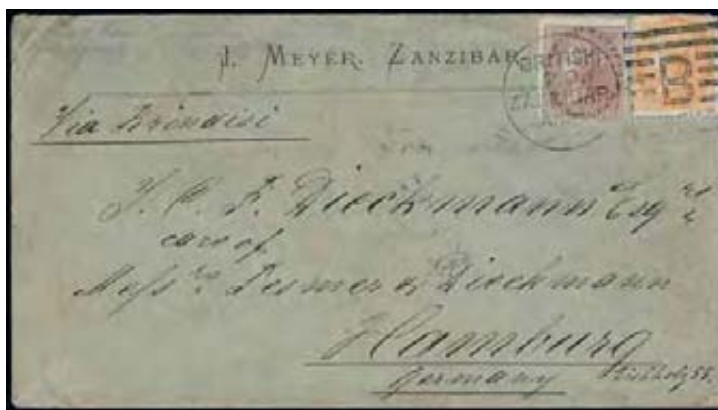 J. MEYER. ZANZIBAR
BRITISH
B
Via Brindisi
Dieckmann Esqre
care of
Messrs & Dieckmann
Hamburg
Germany